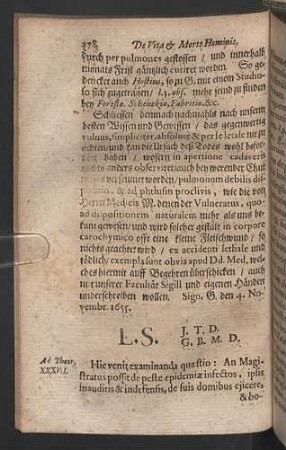 378 De Vita & Morte Hominis.
durch per pulmones gestossen / und innerhalb
Monats Frist gäntzlich curiret worden. So ge-
dencket auch Hostius, so zu G. mit einem Studio-
so sich zugetragen / l.1. obs. mehr seind zu finden
bey Foresto. Schenckio, Fabritio. &c.
Schliessen demnach nachmahls nach unserm
besten Wissen und Gewissen / das gegenwertig
vulnus, simpliciter absolute & per se letale nit zu
achten / und kan die Ursach des Todes wohl
haben / wofern in apertione cadaveris
nichts anders observiret / auch bey werender Chur
nichts versaumet worden / pulmonum debilis dis-
positio, & ad phthisin proclivis, wie die von
Herrn Medicis M. denen der Vulneratus, quo-
ad dispositionem naturalem mehr als uns be-
kant gewesen / und wird solcher gestalt in corpore
cacochymico offt eine kleine Fleischwund / so
nichts geachtet wird / ex accidenti lethale und
tödlich / exempla sunt obvia apud Dd. Med, wel-
ches hiermit auff Begehren überschicken / auch
mit unserer Facultät Sigill und eigenen Händen
underschreiben wollen. Sign. G. den 4. No-
vembr. 1655.
L.S. J. T. D.
G. B. M. D.
Ad Theor.
XXXVII.
Hic venit examinanda quæstio: An Magi-
stratus possit de peste epidemiæ infectos, ipsis
inauditis & indefensis, de suis domibus ejicere,
& bo-